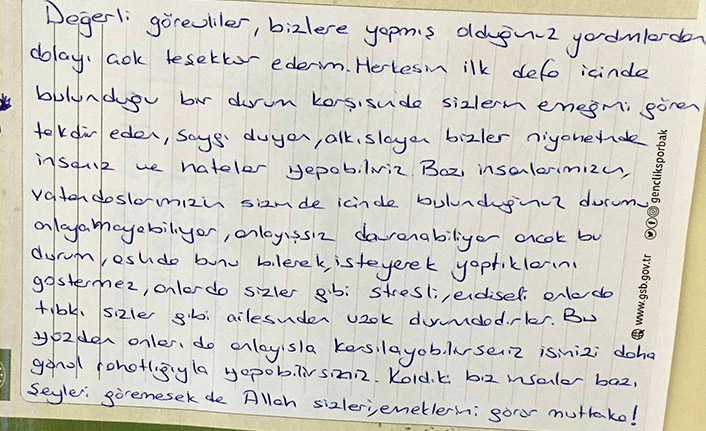 Değerli görevliler, bizlere yapmış olduğunuz yardımlardan
dolayı çok teşekkür ederim. Herkesin ilk defa içinde
bulunduğu bir durum karşısında sizlerin emeğini gören
takdir eden, saygı duyan, alkışlayan bizler niyetinde
insanız ve hatalar yapabiliriz. Bazı insanlarımızın,
vatandaşlarımızın sizin de içinde bulunduğunuz durumu
anlayamayabiliyor, anlayışsız davranabiliyor ancak bu
durum, aslında bunu bilerek, isteyerek yaptıklarını
göstermez, onlarda sizler gibi stresli, endişeli onlarda
tıbkı sizler gibi ailesinden uzak durumdadırlar. Bu
yüzden onları da anlayışla karşılayabilirseniz işinizi daha
gönül rahatlığıyla yapabilirsiniz. Kaldıki biz insanlar bazı
şeyleri göremesek de Allah sizleri, emeklerini görür mutlaka!
www.gsb.gov.tr genclikspor­bak